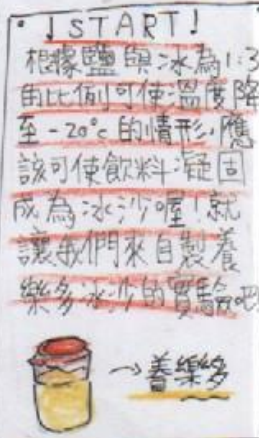 ！START！
根據鹽與冰為1:3
的比例可使溫度降
至-20°c的情形，應
該可使飲料凝固
成為冰沙喔！就
讓我們來自製養
樂多冰沙的實驗吧
→養樂多